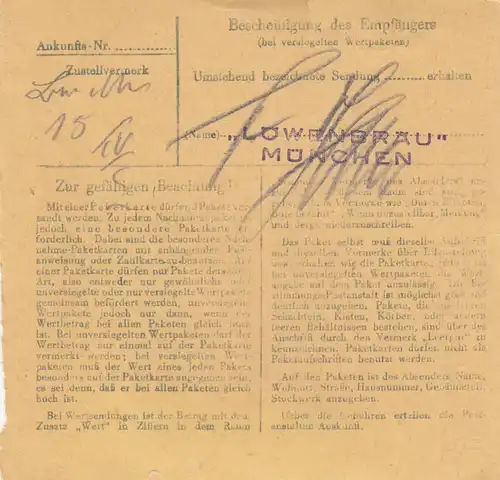 Bescheinigung des Empfängers
(bei versiegelten Wertpaketen)
Ankunfts-Nr.
Zustellvermerk
Umstehend bezeichnete Sendung ........ erhalten
15
(Name)
„LÖWENBRÄU"
MÜNCHEN
Zur gefälligen Beachtung!
Mit einer Paketkarte dürfen 3 Pakete ver-
sandt werden. Zu jedem Nachnahmepaket ist
jedoch eine besondere Paketkarte er-
forderlich. Dabei sind die besonderen Nach-
nahme-Paketkarten mit anhängender Post-
anweisung oder Zahlkarte zu benutzen. Mit
einer Paketkarte dürfen nur Pakete derselben
Art, also entweder nur gewöhnliche oder
unversiegelte oder nur versiegelte Wertpakete
gemeinsam befördert werden, unversiegelte
Wertpakete jedoch nur dann, wenn der
Wertbetrag bei allen Paketen gleich hoch
ist. Bei unversiegelten Wertpaketen darf der
Wertbetrag nur einmal auf der Paketkarte
vermerkt werden; bei versiegelten Wert-
paketen muß der Wert eines jeden Pakets
besonders auf der Paketkarte angegeben sein,
es sei denn, daß er bei allen Paketen gleich
hoch ist.
Bei Wertsendungen ist der Betrag mit dem
Zusatz „Wert" in Ziffern in dem Raum
Das Paket selbst muß dieselbe Aufschrift
und dieselben Vermerke über
wie die Paketkarte;
bei unversiegelten Wertpaketen die Wert-
angabe auf dem Paket unzulässig. Die Be-
stimmungs-Postanstalt ist möglichst groß und
deutlich anzugeben. Pakete, die aus
Schachteln, Kisten, Körben oder andern
leeren Behältnissen bestehen, sind über der
Anschrift durch den Vermerk „Leergut" zu
kennzeichnen. Paketkarten dürfen nicht als
Paketaufschriften benutzt werden.
Auf den Paketen ist des Absenders Name,
Wohnort, Straße, Hausnummer, Gebäudeteil,
Stockwerk anzugeben.
Ueber die Gebühren erteilen die Post-
anstalten Auskunft.